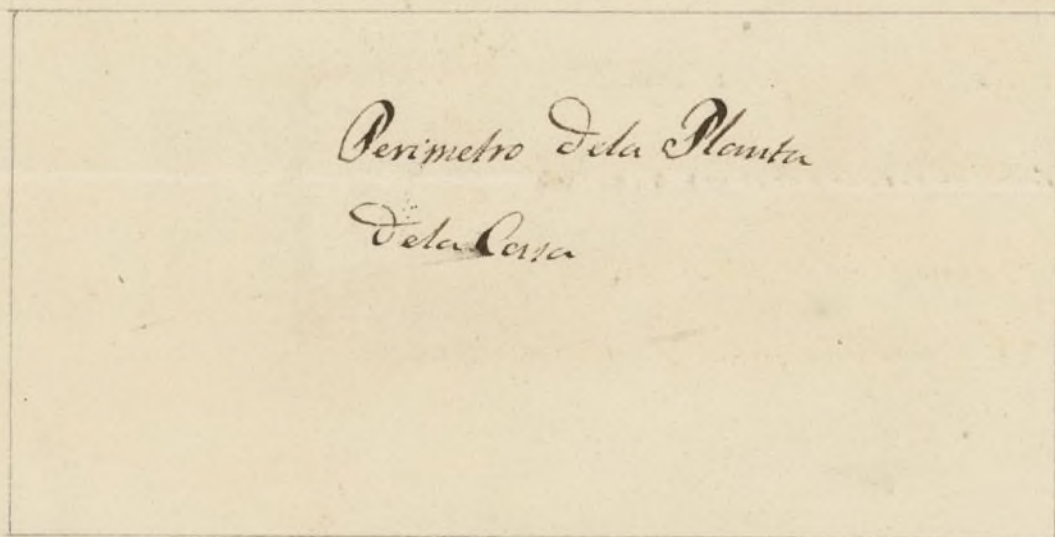 Perimetro dela Planta
dela Casa